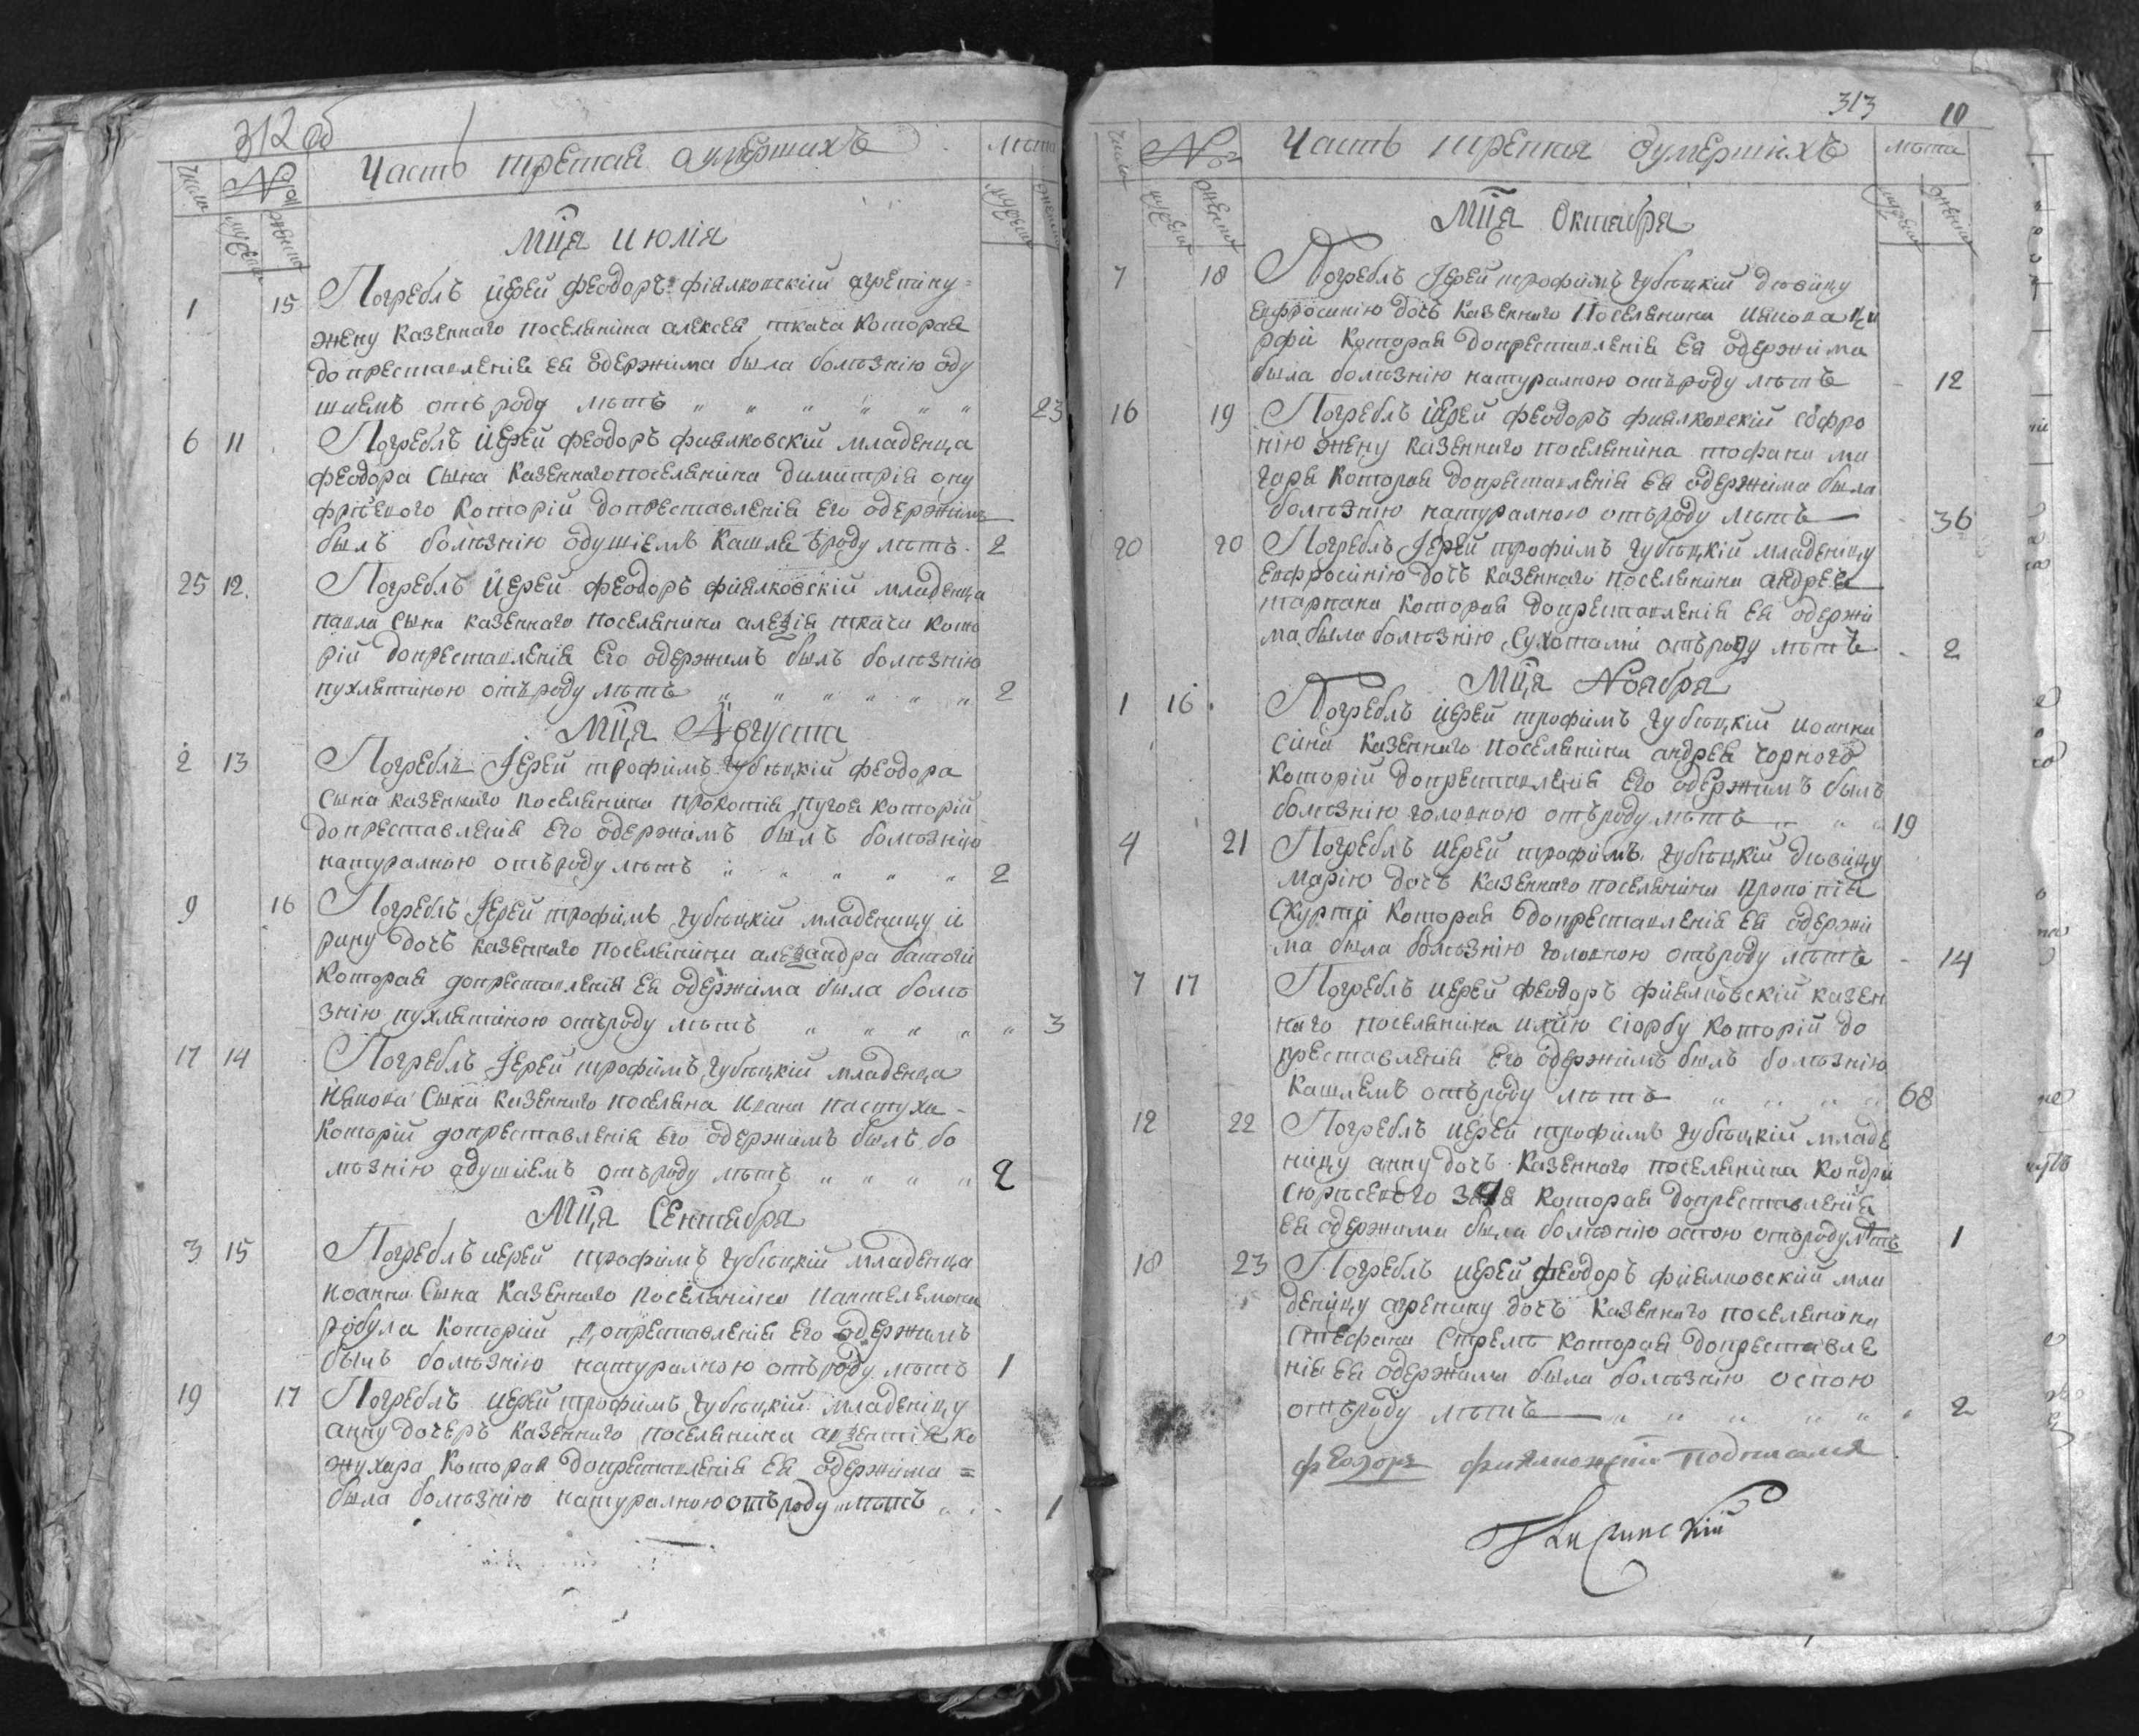 312 об
Число № Часть третая оумершихъ Лѣта
мужеска женска мужеска женска
Мц҃а июлія
1 15 Погреблъ іерей феодоръ фіялковскій агрепину
жену казеннаго поселянина алексея ткача которая
допреставленія ея одержима была болѣзнію оду
шиемъ отъ роду лѣтъ 23
6 11 Погреблъ іерей феодоръ фиялковскій младенца
феодора сына казеннаго поселянина димитрія ону
фріевого которій допреставленія его одержимъ
былъ болѣзнію одушіемъ кашля ъроду лѣтъ 2
25 12 Погреблъ іерей феодоръ фіялковскій младенца
павла сына казеннаго поселянина алезія ткача кото
рій допреставленія его одержимъ былъ болѣзнію
пухлятиною отъ роду лѣтъ 2
Мц҃а Августа
2 13 Погреблъ іерей трофимъ губѣцкій феодора
сына казеннаго поселянина прокопія пугоя которій
допреставленія его одержимъ былъ болѣзнію
натуралною отъ роду лѣтъ 2
9 16 Погреблъ іерей трофимъ губѣцкій младеницу и
рину дочь казеннаго поселянина алезандра батоги
которая допреставленія ея одержима была болѣ
знію пухлятиною отъ роду лѣтъ 3
17 14 Погреблъ іерей трофимъ губѣцкій младенца
иякова сына казенного поселяна ивана пастуха
которій допреставленія его одержимъ былъ бо
лѣзнію одушіемъ отъ роду лѣтъ 2
Мц҃а Сентября
3 15 Погреблъ иерей трофимъ губѣцкій младенца
иоанна сына казенного поселянина пантелемона
робула которій допреставленія его одержимъ
былъ болѣзнію натуралною отъ роду лѣтъ 1
19 17 Погреблъ иерей трофимъ губѣцкій младеницу
анну дочеръ казенного поселянина авзентія ко
жухара которая допреставленія ея одержима
была болѣзнію натуралною отъ роду лѣтъ 1
313 10
Число № Часть третая оумершихъ лѣта
мужеск женска мужеск женска
Мц҃а Октября
7 18 Погреблъ іерей трофимъ губѣцкій дѣвицу
евфросинію дочъ казенного поселянина иякова
которая допреставленія ея одержима
была болѣзнію натуралною отъ роду лѣтъ 12
16 19 Погреблъ іерей феодоръ фиялковскій софро
нію жену казенного поселянина тофана ма
гаря которая допреставленія ея одержима была
болѣзнію натуралною отъ роду лѣтъ 36
20 20 Погреблъ іерей трофимъ губѣцкій младеницу
евфросинію дочъ казенного поселянина андрея
тарпана которая допреставленія ея одержи
ма была болѣзнію сухотами отъ роду лѣтъ 2
Мц҃а Ноября
1 16 Погреблъ иерей трофимъ губѣцкій иоанна
сина казенного поселянина андрея чорного
которій допреставленія его одержимъ былъ
болѣзнію головною отъ роду лѣтъ 19
4 21 Погреблъ иерей трофимъ губѣцкій дѣвицу
марію дочъ казенного поселянина прокопія
скурті которая допреставленія ея одержи
ма была болѣзнію головною отъ роду лѣтъ 14
7 17 Погреблъ иерей феодоръ фиялковскій казен
наго поселянина илию сіорбу которій до
преставленія его одержимъ былъ болѣзнію
кашлемъ отъ роду лѣтъ 68
12 22 Погреблъ иерей трофимъ губѣцкій младе
ницу анну дочъ казенного поселянина кондри
которая допреставленія
ея одержима была болѣзнію оспою отъроду лѣтъ 1
18 23 Погреблъ иерей феодоръ фиялковскій мла
деницу агрепину дочъ казенного поселянина
стефана стремъ которая допреставле
нія ея одержима была болѣзнію оспою
отъ роду лѣтъ 2
феодоръ фиялковскій подписался